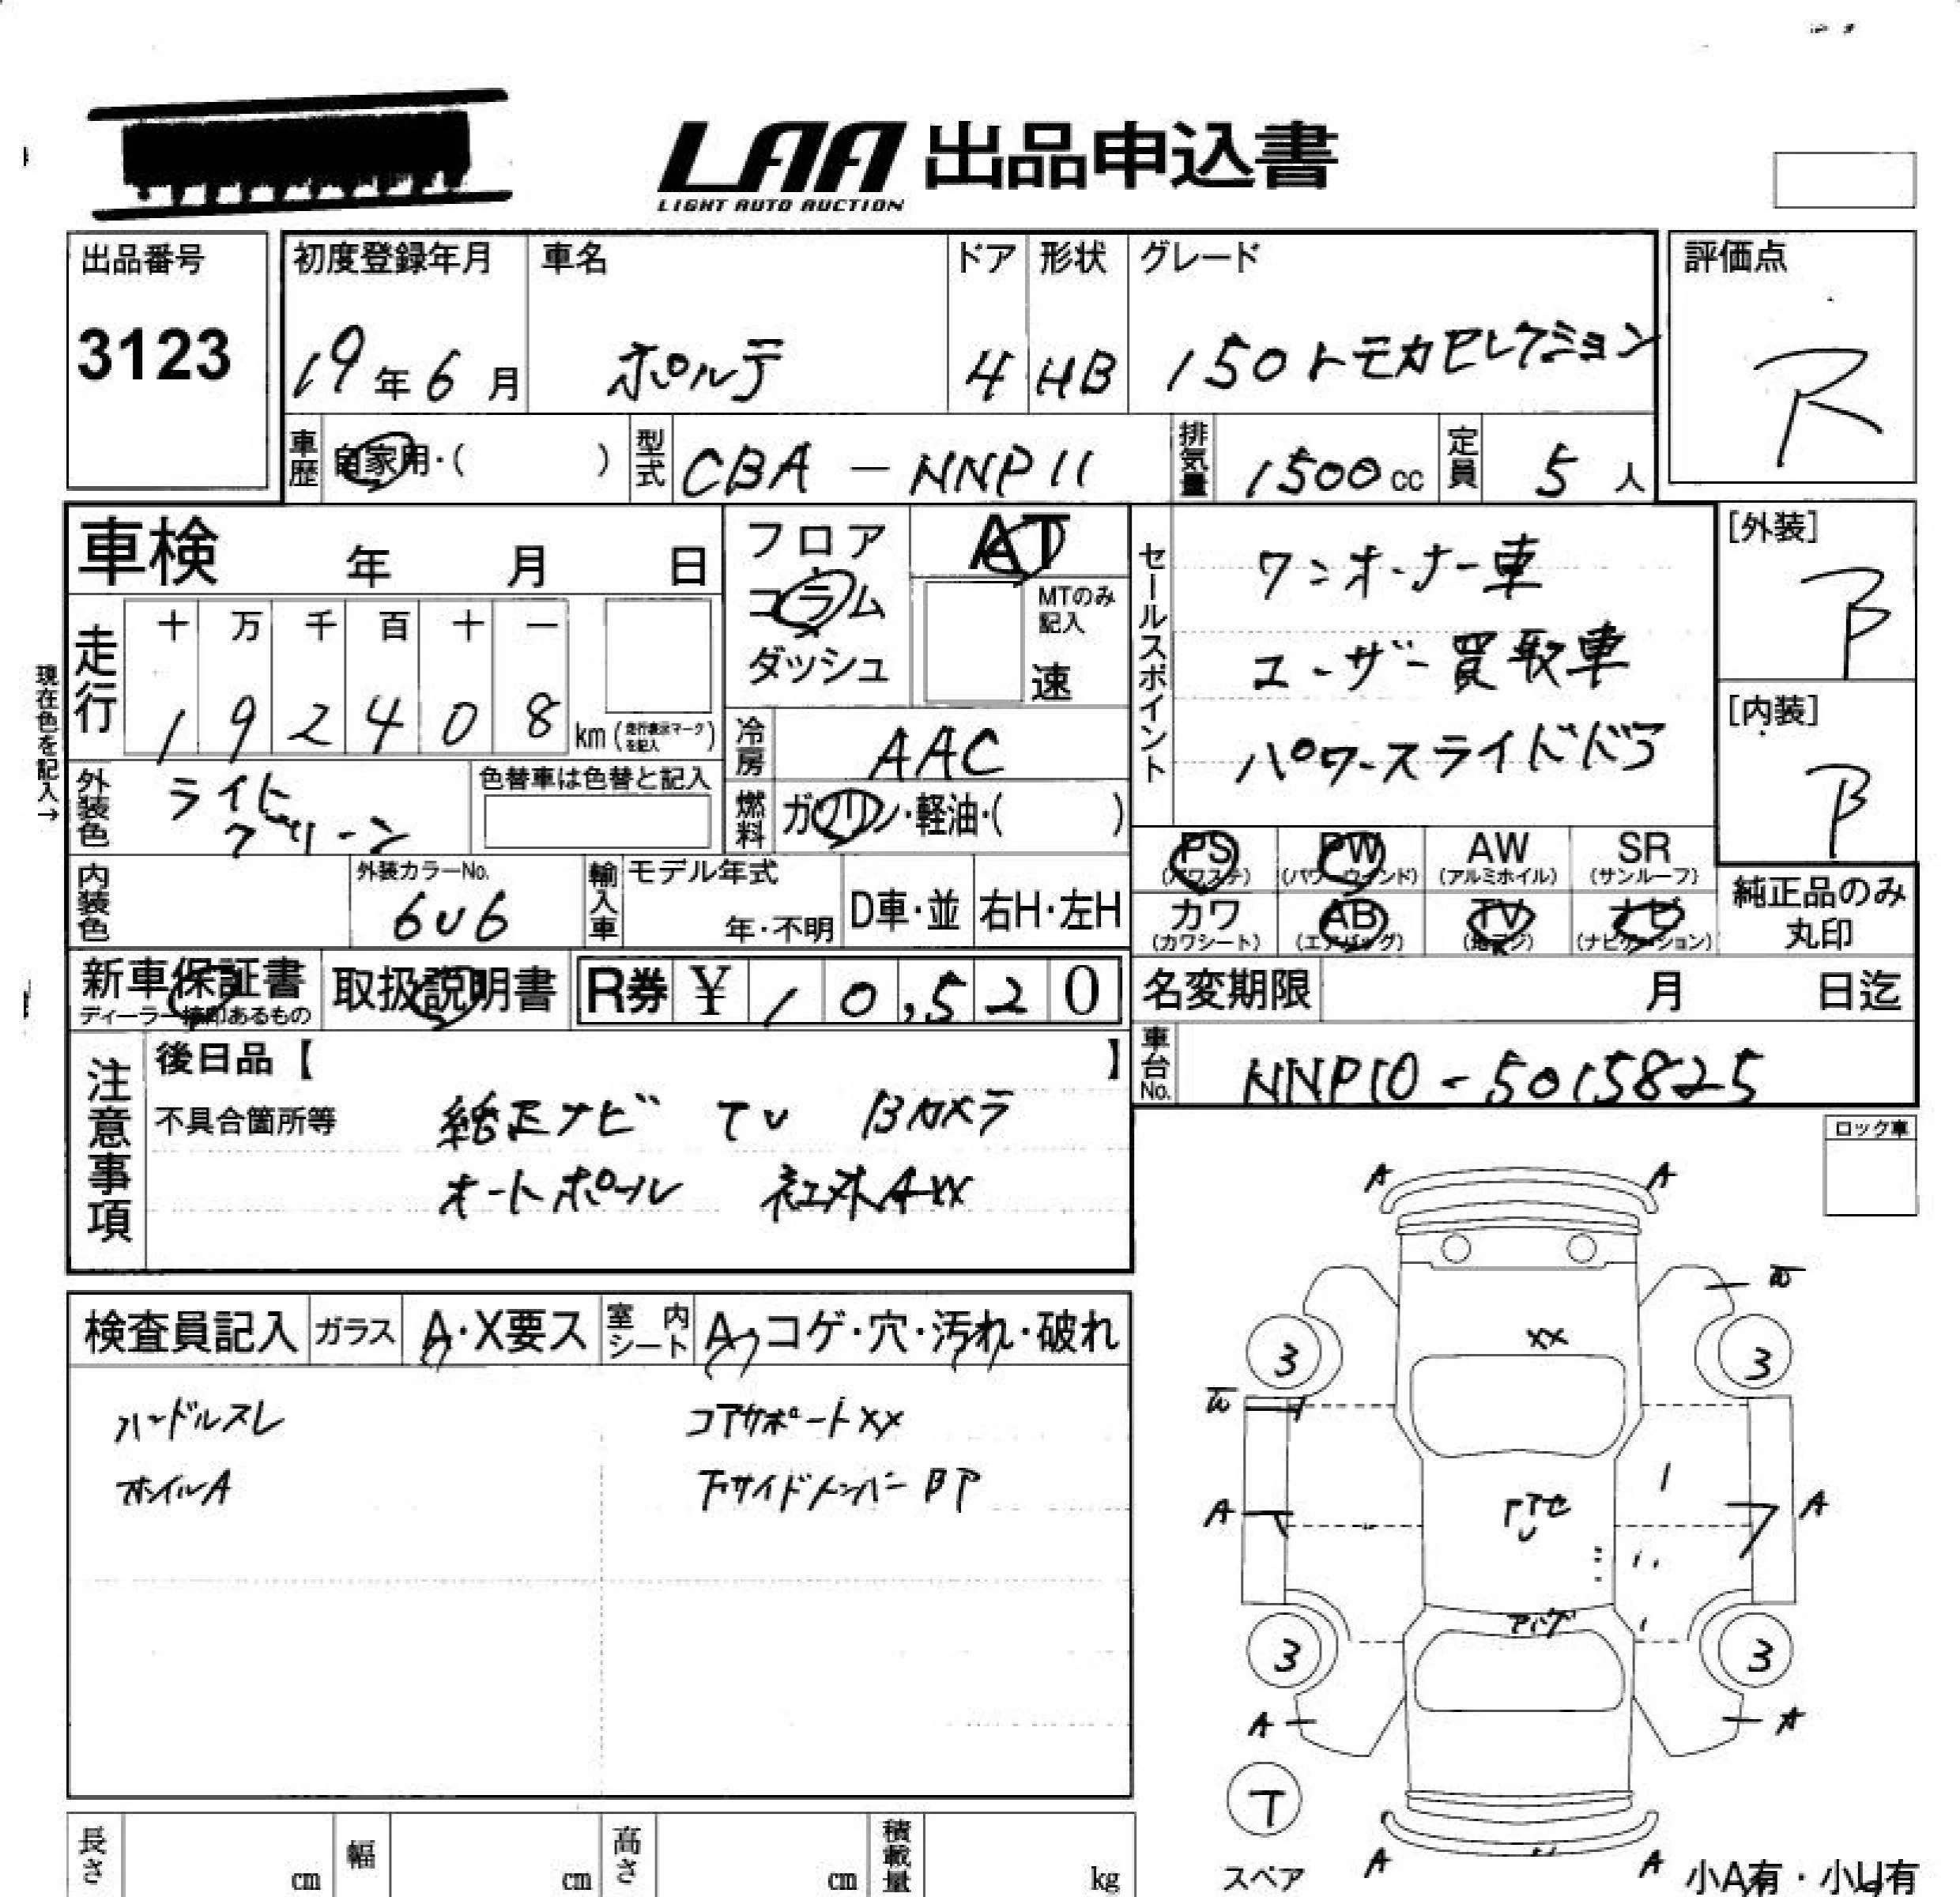 LAA 出品申込書
LIGHT AUTO AUCTION
出品番号
3123
初度登録年月
19年6月
車名
ポルテ
ドア
4
形状
HB
グレード
150トモカセレクション
評価点
R
車歴
自家用・( )
型式
CBA - NNP11
排気量
1500cc
定員
5人
車検 年 月 日
フロア
コラム
ダッシュ
AT
MTのみ記入
速
セールスポイント
ワンオーナー車
ユーザー買取車
パワースライドドア
[外装]
B
[内装]
B
現在色を記入→
走行
十 万 千 百 十 一
1 9 2 4 0 8
km(走行表示マークを記入)
冷房
AAC
外装色
ライト
グリーン
色替車は色替と記入
燃料
ガソリン・軽油・( )
PS
(パワステ)
PW
(パワーウインド)
AW
(アルミホイル)
SR
(サンルーフ)
カワ
(カワシート)
AB
(エアバッグ)
TV
(地デジ)
ナビ
(ナビゲーション)
純正品のみ
丸印
内装色
外装カラーNo.
6U6
輸入車
モデル年式
年・不明
D車・並
右H・左H
新車保証書
ディーラー捺印あるもの
取扱説明書
R券 ¥ 10,520
名変期限 月 日迄
車台No.
NNP10-5015825
注意事項
後日品【 】
不具合箇所等
純正ナビ TV Bカメラ
オートポール 社外AW
ロック車
検査員記入
ガラス
A・X要ス
室内シート
A・コゲ・穴・汚れ・破れ
ハンドルスレ
ホイルA
コアサポートXX
下サイドメンバーBP
A A
W
XX
3 3
W
A A
3 3
A A
T
スペア
A A
小A有・小U有
長さ cm
幅 cm
高さ cm
積載量 kg